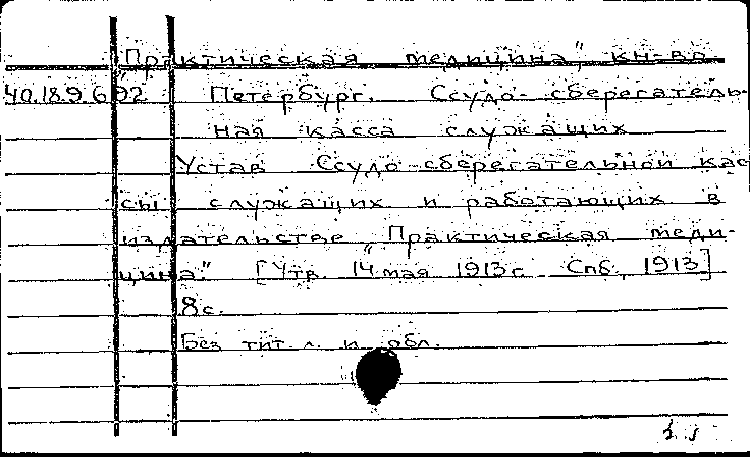 "Практическая медицина", кн-во.
40.18.9.692 Петербург. Ссудо-сберегатель-
ная касса служащих
Устав Ссудо-сберегательной кас
сы служащих и работающих в
издательстве "Практическая меди-
цина." [Утв. 14 мая 1913 г. Спб, 1913]
8 с.
Без тит. л. и обл.